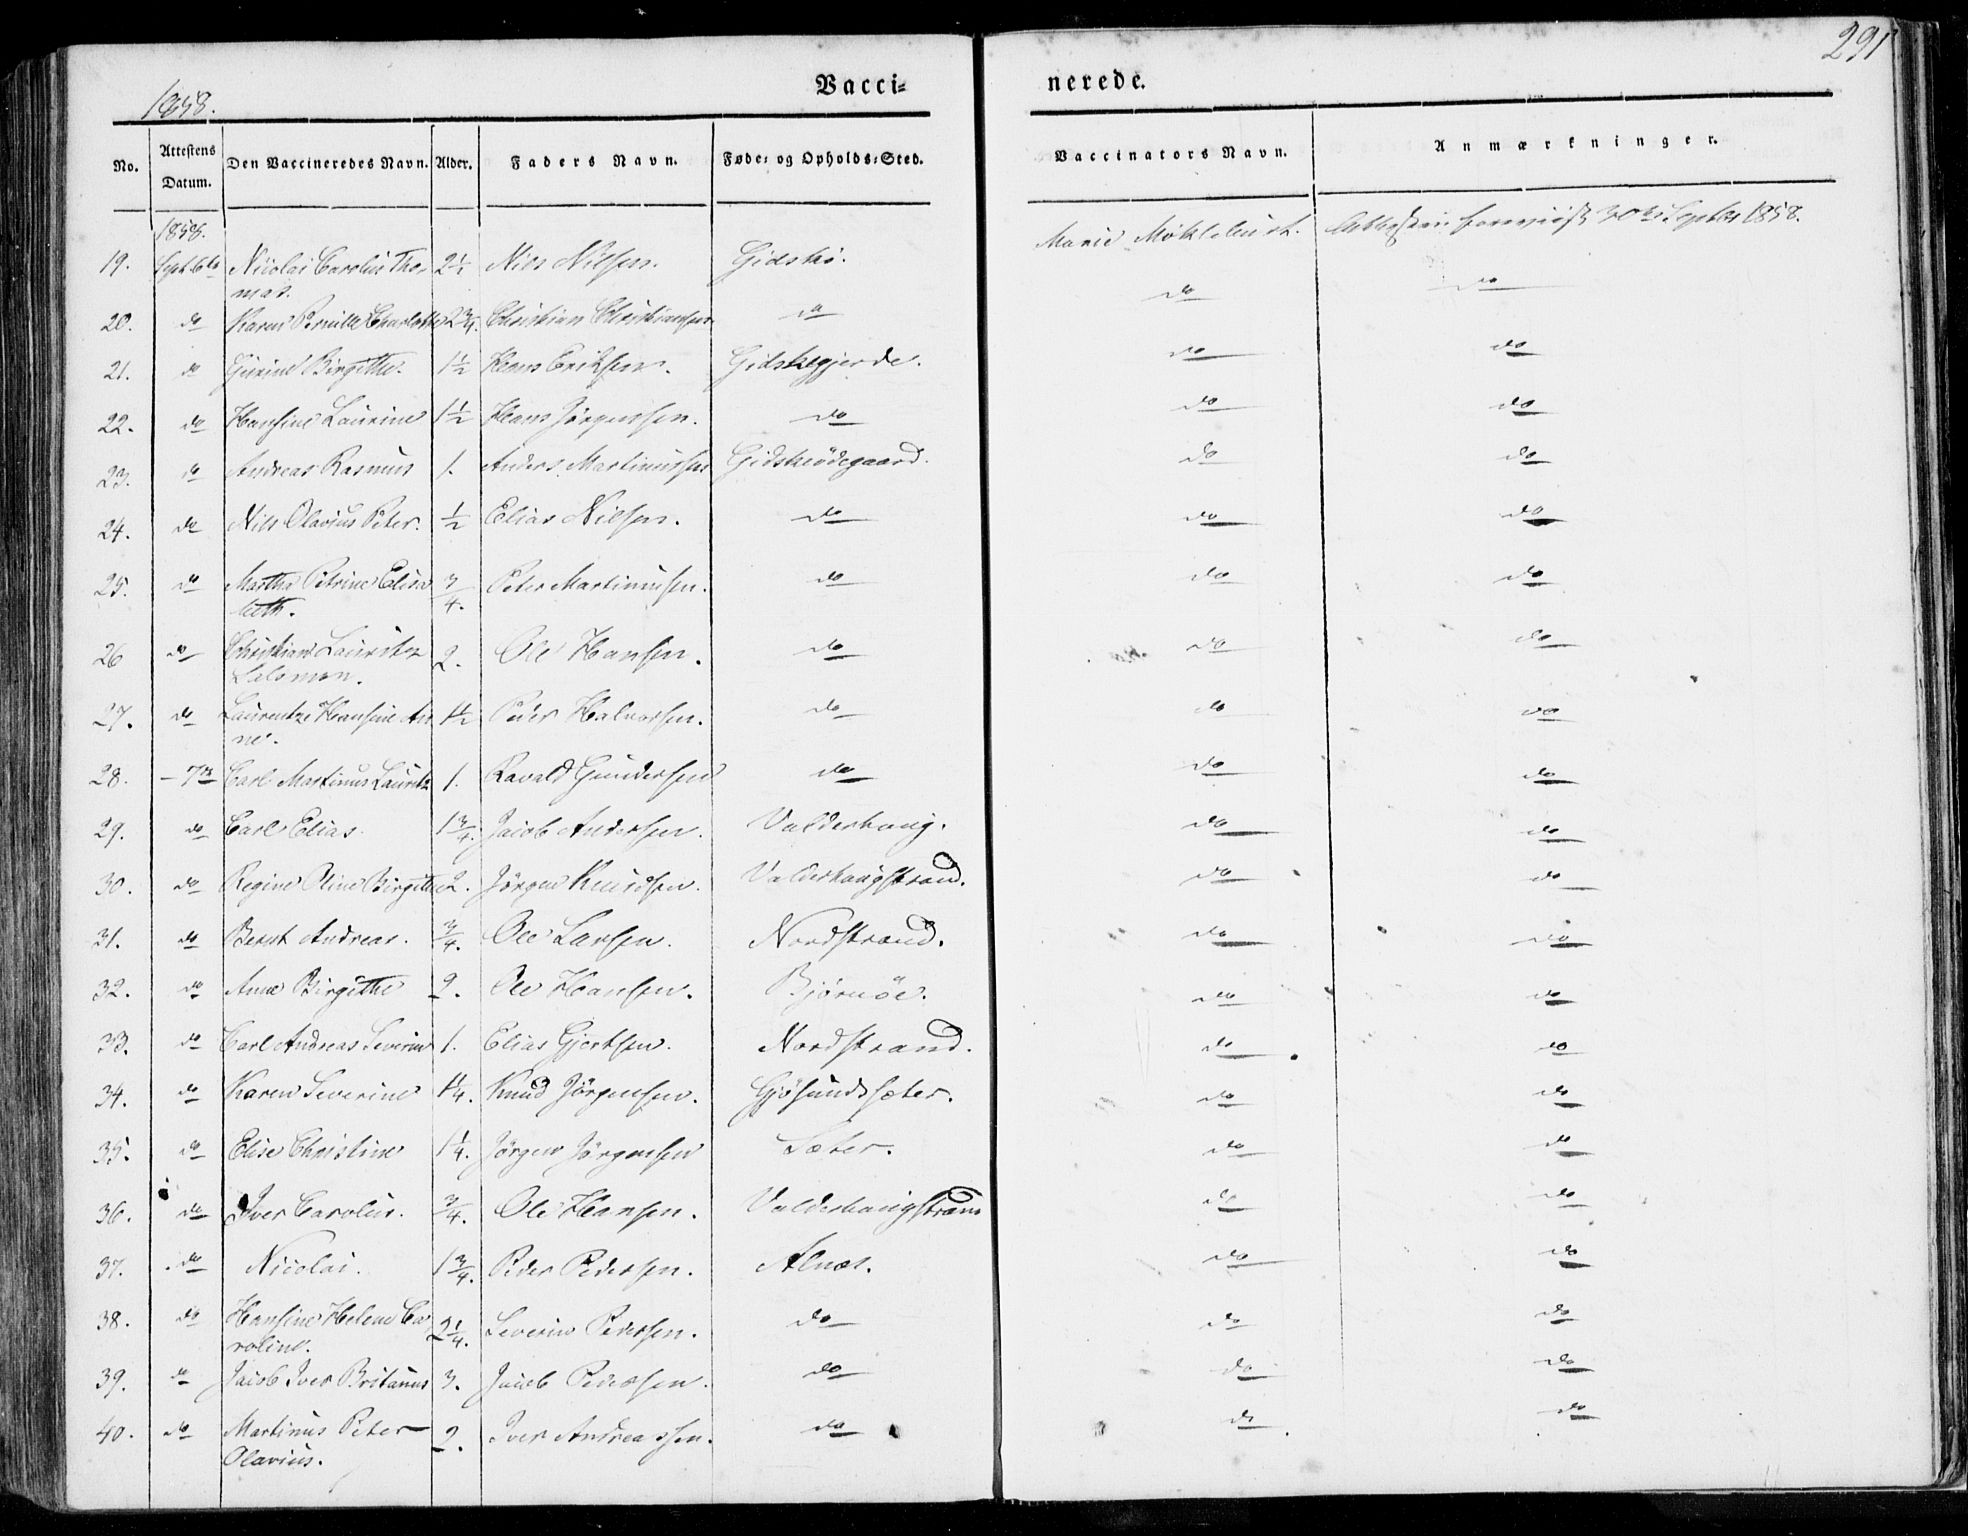 291
1858.
Vacci=
nerede.
No.
Attestens Datum.
Den Vaccineredes Navn.
Alder.
Faders Navn.
Føde= og Opholds=Sted.
Vaccinators Navn.
Anmærkninger.
1858.
19. Sept. 6te Nicolai Carolus Tho- 2½ Nils Nilsen. Gidskø. Marie Møklebust. 30te Septbr 1858.
mas.
20. do Karen Pernille Charlotte 2¾. Christian Christiansen do do do
21. do Gurine Birgitthe. 1½ Hans Eriksen. Gidskegjerde. do do
22. do Hansine Laurine 1½ Hans Jörgensen. do do do
23. do Andreas Rasmus 1. Anders Martinussen Gidskeödegaard. do do
24. do Nils Olavius Peter. ½ Elias Nilsen. do do do
25. do Martha Petrine Elisa ¾. Peter Martinusen. do do do
beth.
26 do Christian Lauritz 2. Ole Hansen. do do do
Salomon.
27. do Laurentze Hansine An 1½ Peder Halvorsen. do do do
ne.
28. - 7de Carl Martinus Lauritz 1. Ravald Gundersen do do do
29. do Carl Elias. 1¾. Jacob Andersen. Valderhoug. do do
30. do Regine Oline Birgitte 2. Jörgen Knudsen. Valderhougstrand. do do
31. do Bernt Andreas. ¾. Ole Larsen. Nordstrand. do do
32. do Anne Birgitthe 2. Ole Hansen. Bjørnöe. do do
33. do Carl Andreas Severin 1. Elias Gjertsen. Nordstrand. do do
34. do Karen Severine 1¼. Knud Jörgensen. Gjösundsæter. do do
35. do Elise Christine 1¼. Jörgen Jörgensen Sæter. do do
36. do Iver Carolus. ¾. Ole Hansen. Valderhougstrand do do
37. do Nicolai. 1¾. Peder Pedersen. Alnæs. do do
38. do Hansine Helene Ca 2¼. Severin Pedersen. do do do
roline.
39. do Jacob Iver Britanus 3. Jacob Pedersen. do do do
40. do Martinus Peter 2. Iver Andreassen. do do do
Olavius.